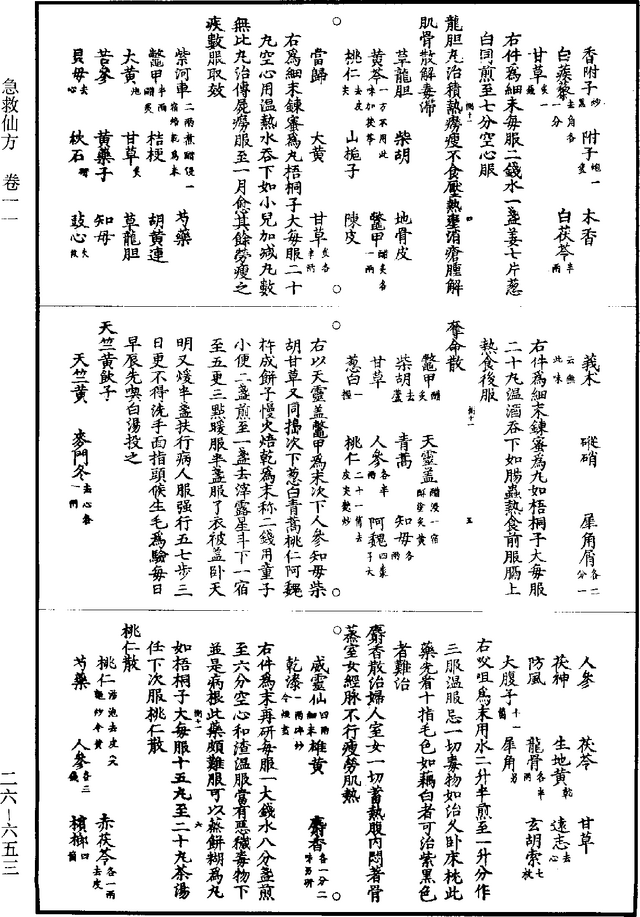 急救仙方 卷一一
香附子炒 附子炮一 木香
白蒺藜去角各一分 白茯苓半兩
甘草炙一
右件為細末每服二錢水一盞姜七片葱
白同煎至七分空心服
龍胆丸治積熱癆瘦不食壓熱壅消瘡腫解
肌骨散解毒滯
草龍胆 柴胡 地骨皮
黄芩一方不用此味加茯苓 鱉甲醋炙各一兩
桃仁去皮 山梔子 陳皮
當歸 大黄 甘草炙各半兩
右為細末鍊蜜為丸梧桐子大每服二十
丸空心用温熱水吞下如小兒加减丸數
無比丸治傳屍癆服至一月愈其餘勞瘦之
疾數服取效
紫河車 芍藥
鱉甲半兩醋炙 桔梗 胡黄連
大黄 甘草炙 草龍胆
苦參 黄藥子 知母
貝母去心 秋石 豉心
莪朮 硇硝 犀角屑各二分一
右件為細末鍊蜜為丸如梧桐子大每服
二十丸温酒吞下如腸蟲熱食前服膈上
熱食後服
奪命散
鱉甲醋炙 天靈盖
柴胡去蘆 青蒿 知母各兩
甘草 人參各半兩 阿魏
葱白一握 桃仁二十一箇去皮尖麩炒
右以天靈盖鱉甲為末次下人參知母柴
胡甘草又同搗次下葱白青蒿桃仁阿魏
杵成餅子慢火焙乾為末称二錢用童子
小便二盞煎至一盞去滓露星斗下一宿
至五更三點暖服半盞服了衣被盖卧天
明又煖半盞扶行病人服强行五七步三
日更不得洗手面指頭候生毛為驗每日
早辰先喫白湯投之
天竺黄飲子
天竺黄 麥門冬去心各一兩
人參 茯苓 甘草
茯神 生地黄乾 遠志去心
防風 龍骨各半兩 玄胡索七枚
大腹子十一箇 犀角
右㕮咀為末用水二升半煎至一升分作
三服温服忌一切毒物如治久卧床枕此
藥先看十指毛色如藕白者可治紫黑色
者難治
麝香散治婦人室女一切蓄熱腹内悶著骨
蒸室女經脉不行瘦勞肌熱
威靈仙四兩細末 雄黄 麝香各一分二味另研
乾漆
右件為末再研每服一大錢水八分盞煎
至六分空心和渣温服當有惡穢毒物下
並是病根此藥頗難服可以蒸餅糊為丸
如梧桐子大每服十五丸至二十丸茶湯
任下次服桃仁散
桃仁散
桃仁一湯泡去皮尖麩炒令黄 赤茯苓去皮各一兩
芍藥 人參各三錢 檳榔四箇
二六—六五三